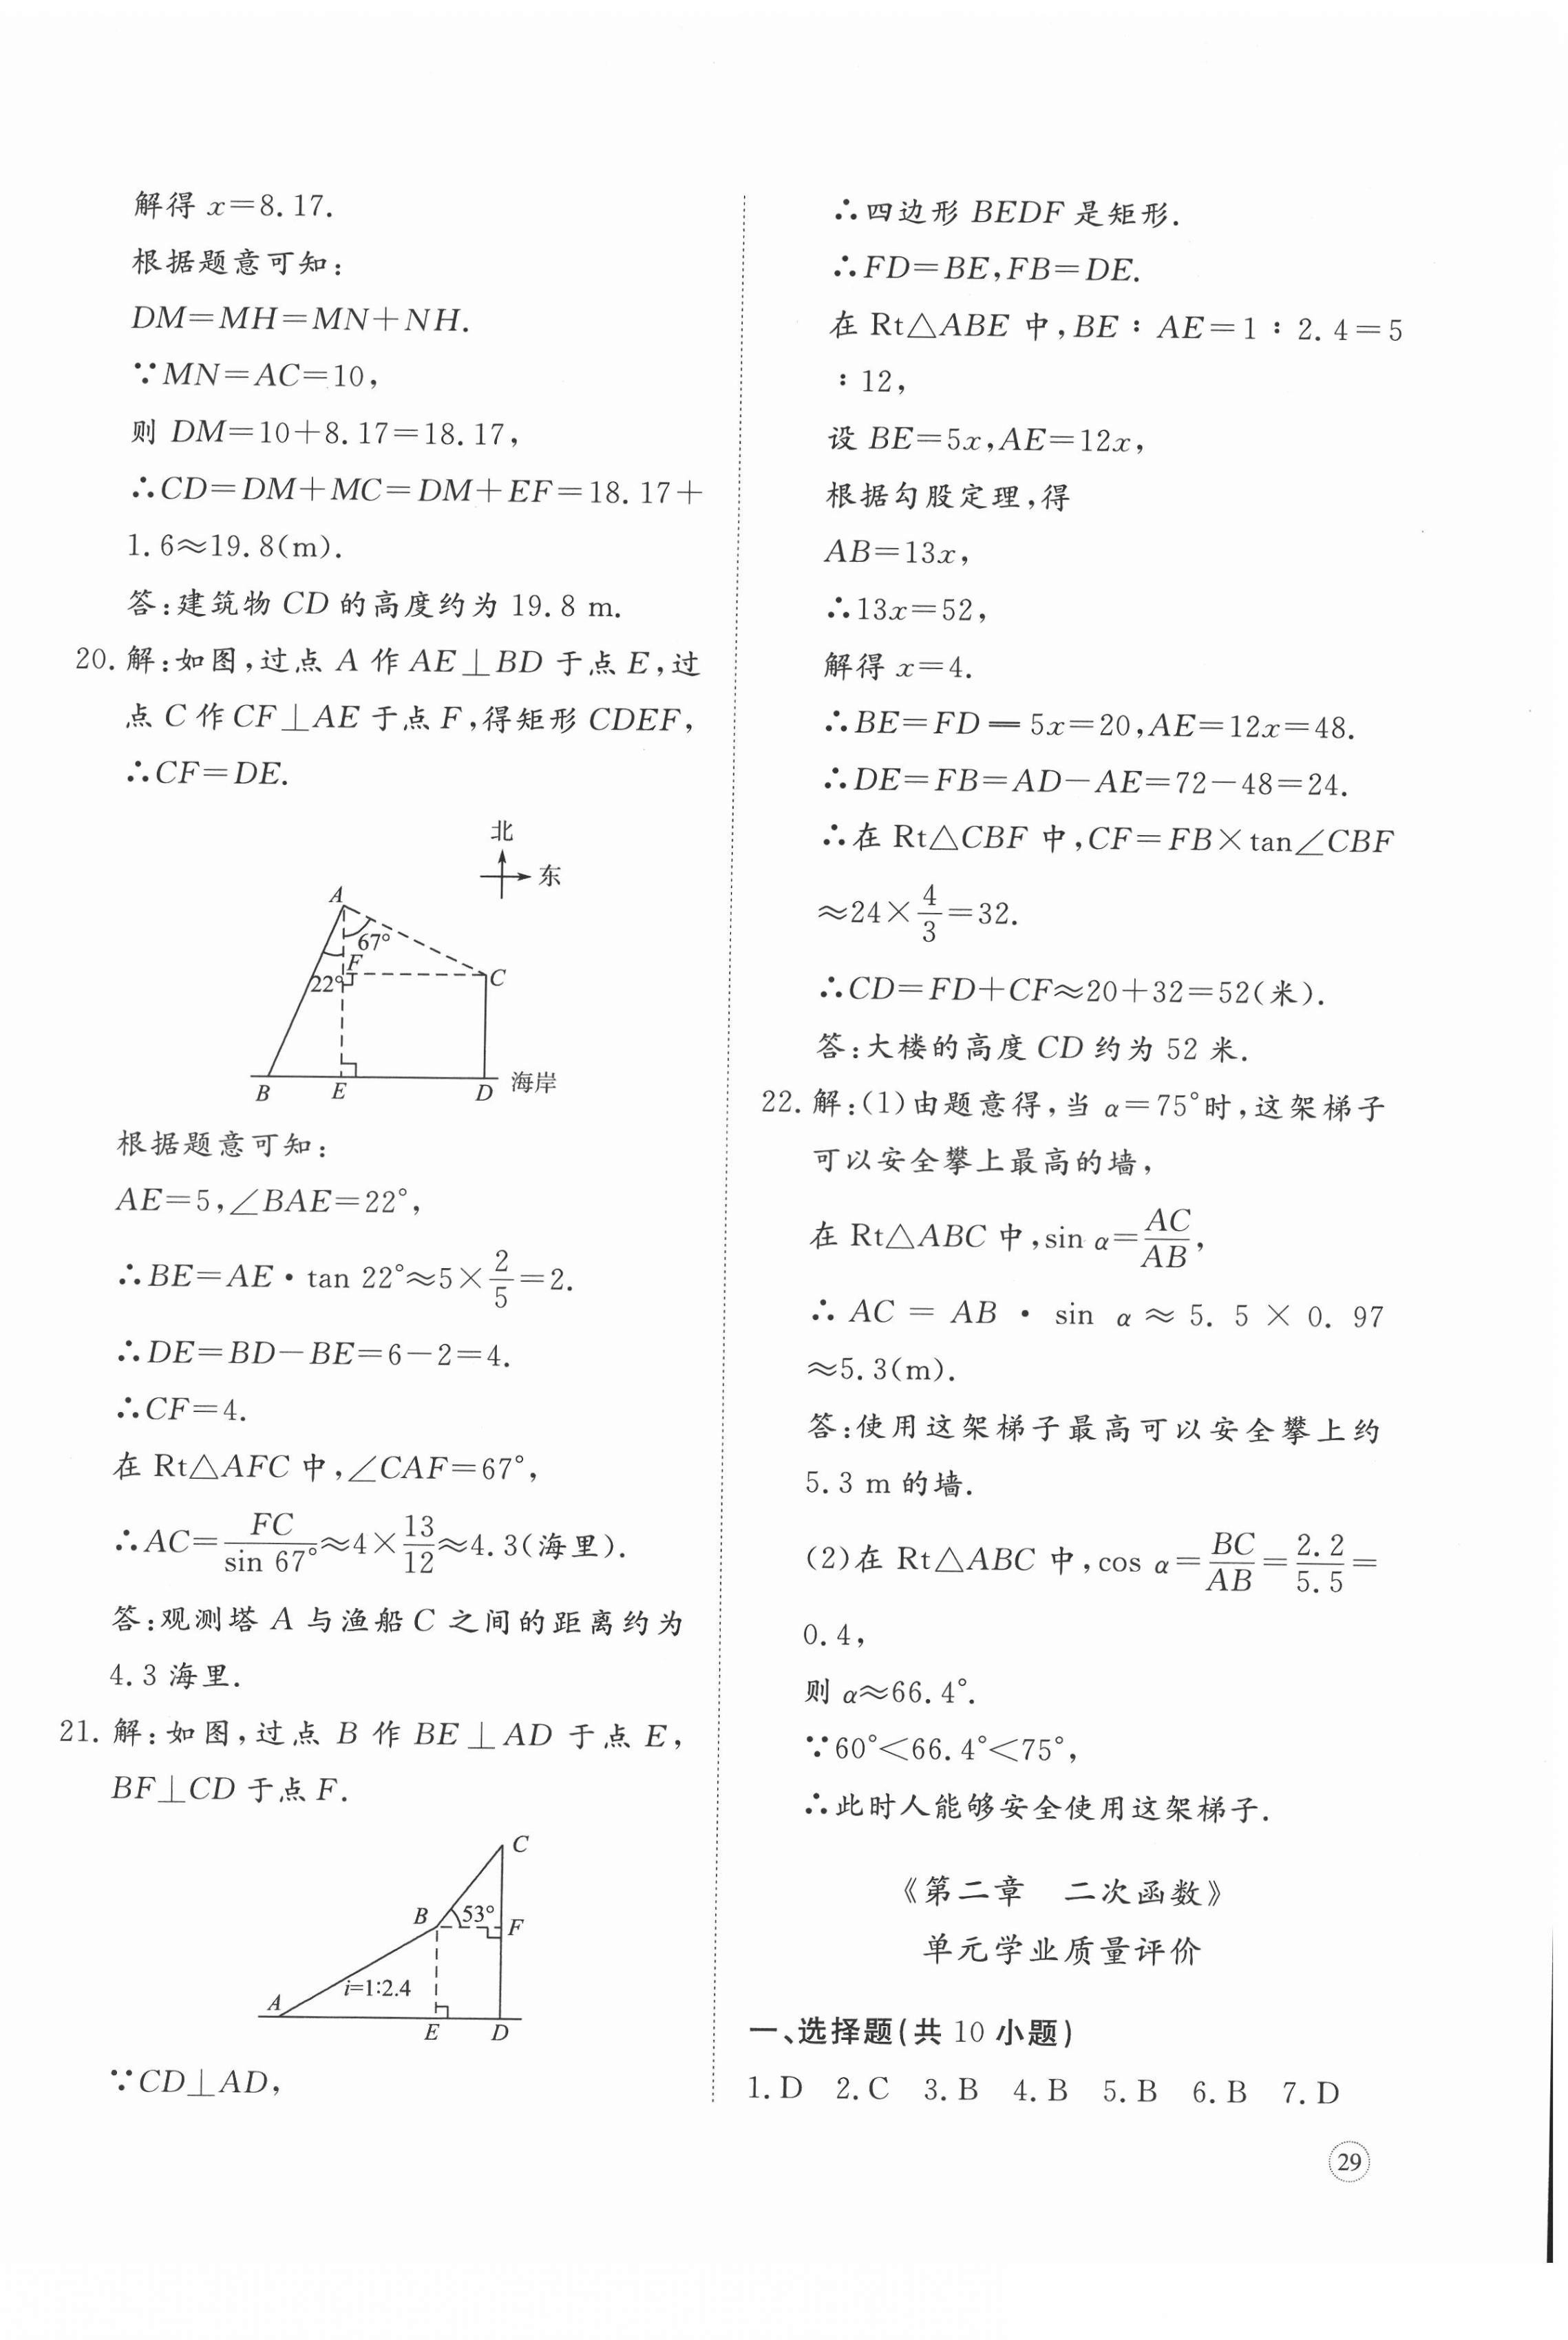 解得 x=8.17.
根据题意可知:
DM=MH=MN+NH.
∵MN=AC=10,
则 DM=10+8.17=18.17,
∴CD=DM+MC=DM+EF=18.17+
1.6≈19.8(m).
答:建筑物 CD 的高度约为 19.8 m.
20. 解:如图,过点 A 作 AE⊥BD 于点 E,过
点 C 作 CF⊥AE 于点 F,得矩形 CDEF,
∴CF=DE.
北
东
A
67°
F
22°
C
B
E
D
海岸
根据题意可知:
AE=5,∠BAE=22°,
∴BE=AE·tan 22°≈5×2/5=2.
∴DE=BD-BE=6-2=4.
∴CF=4.
在 Rt△AFC 中,∠CAF=67°,
∴AC=FC/sin 67°≈4×13/12≈4.3(海里).
答:观测塔 A 与渔船 C 之间的距离约为
4.3 海里.
21. 解:如图,过点 B 作 BE⊥AD 于点 E,
BF⊥CD 于点 F.
C
B
53°
F
i=1:2.4
A
E
D
∵CD⊥AD,
∴四边形 BEDF 是矩形.
∴FD=BE,FB=DE.
在 Rt△ABE 中,BE:AE=1:2.4=5
:12,
设 BE=5x,AE=12x,
根据勾股定理,得
AB=13x,
∴13x=52,
解得 x=4.
∴BE=FD=5x=20,AE=12x=48.
∴DE=FB=AD-AE=72-48=24.
∴在 Rt△CBF 中,CF=FB×tan∠CBF
≈24×4/3=32.
∴CD=FD+CF≈20+32=52(米).
答:大楼的高度 CD 约为 52 米.
22. 解:(1)由题意得,当 α=75°时,这架梯子
可以安全攀上最高的墙,
在 Rt△ABC 中,sin α=AC/AB,
∴ AC = AB · sin α ≈ 5.5 × 0.97
≈5.3(m).
答:使用这架梯子最高可以安全攀上约
5.3 m 的墙.
(2)在 Rt△ABC 中,cos α=BC/AB=2.2/5.5=
0.4,
则 α≈66.4°.
∵60°<66.4°<75°,
∴此时人能够安全使用这架梯子.
《第二章 二次函数》
单元学业质量评价
一、选择题(共 10 小题)
1.D 2.C 3.B 4.B 5.B 6.B 7.D
29